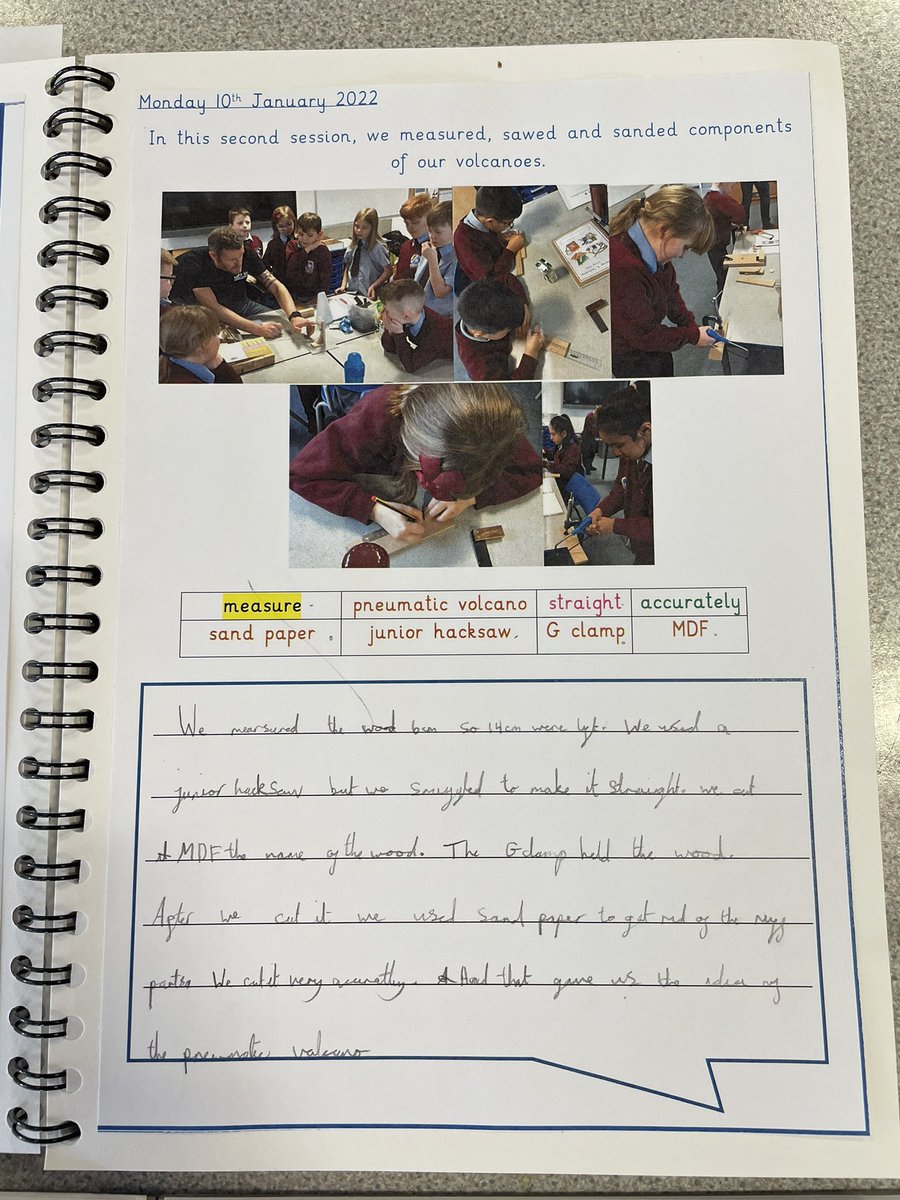 Monday 10th January 2022
In this second session, we measured, sawed and sanded components
of our volcanoes.
measure pneumatic volcano straight accurately
sand paper junior hacksaw G clamp MDF
We mearsured the wood 6cm so 14cm were left. We used a
junior hacksaw but we smuggled to make it straight. we cut
MDF the name of the wood. The G clamp held the wood.
After we cut it we used sand paper to get rid of the
parts We cut it very And that gave us the idea of
the pneumatic valcano